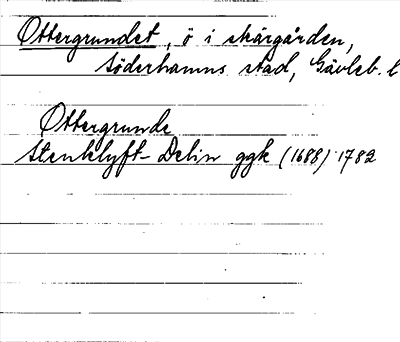 Ottergrundet, ö i skärgården,
Söderhamns stad, Gävleb. l
Ottergrunde
Stenklyft-Delin ggk (1688) 1782